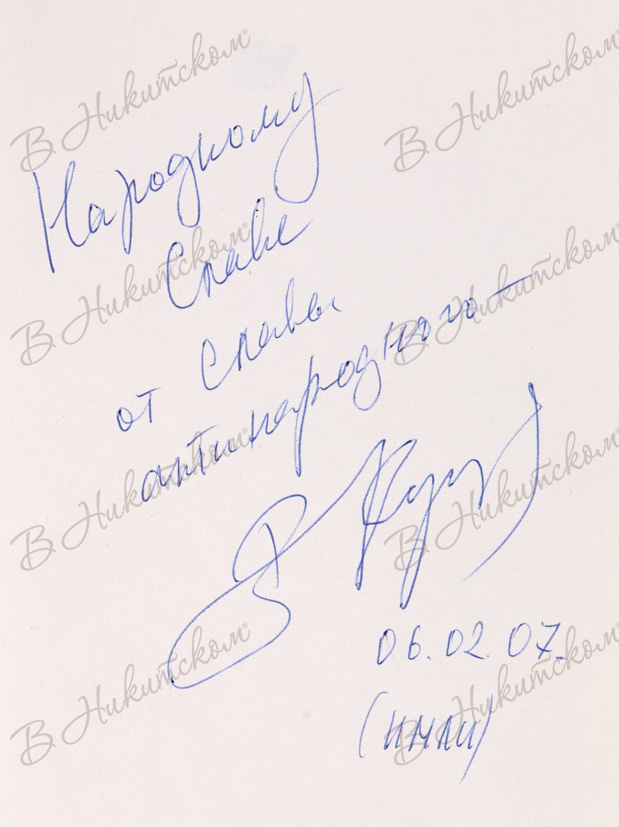 Народному
Славе
от Славы
антинародного —
06.02.07.
(ИМЛИ)
В Никитском
В Никитском
В Никитском
В Никитском
В Никитском
В Никитском
В Никитском
В Никитском